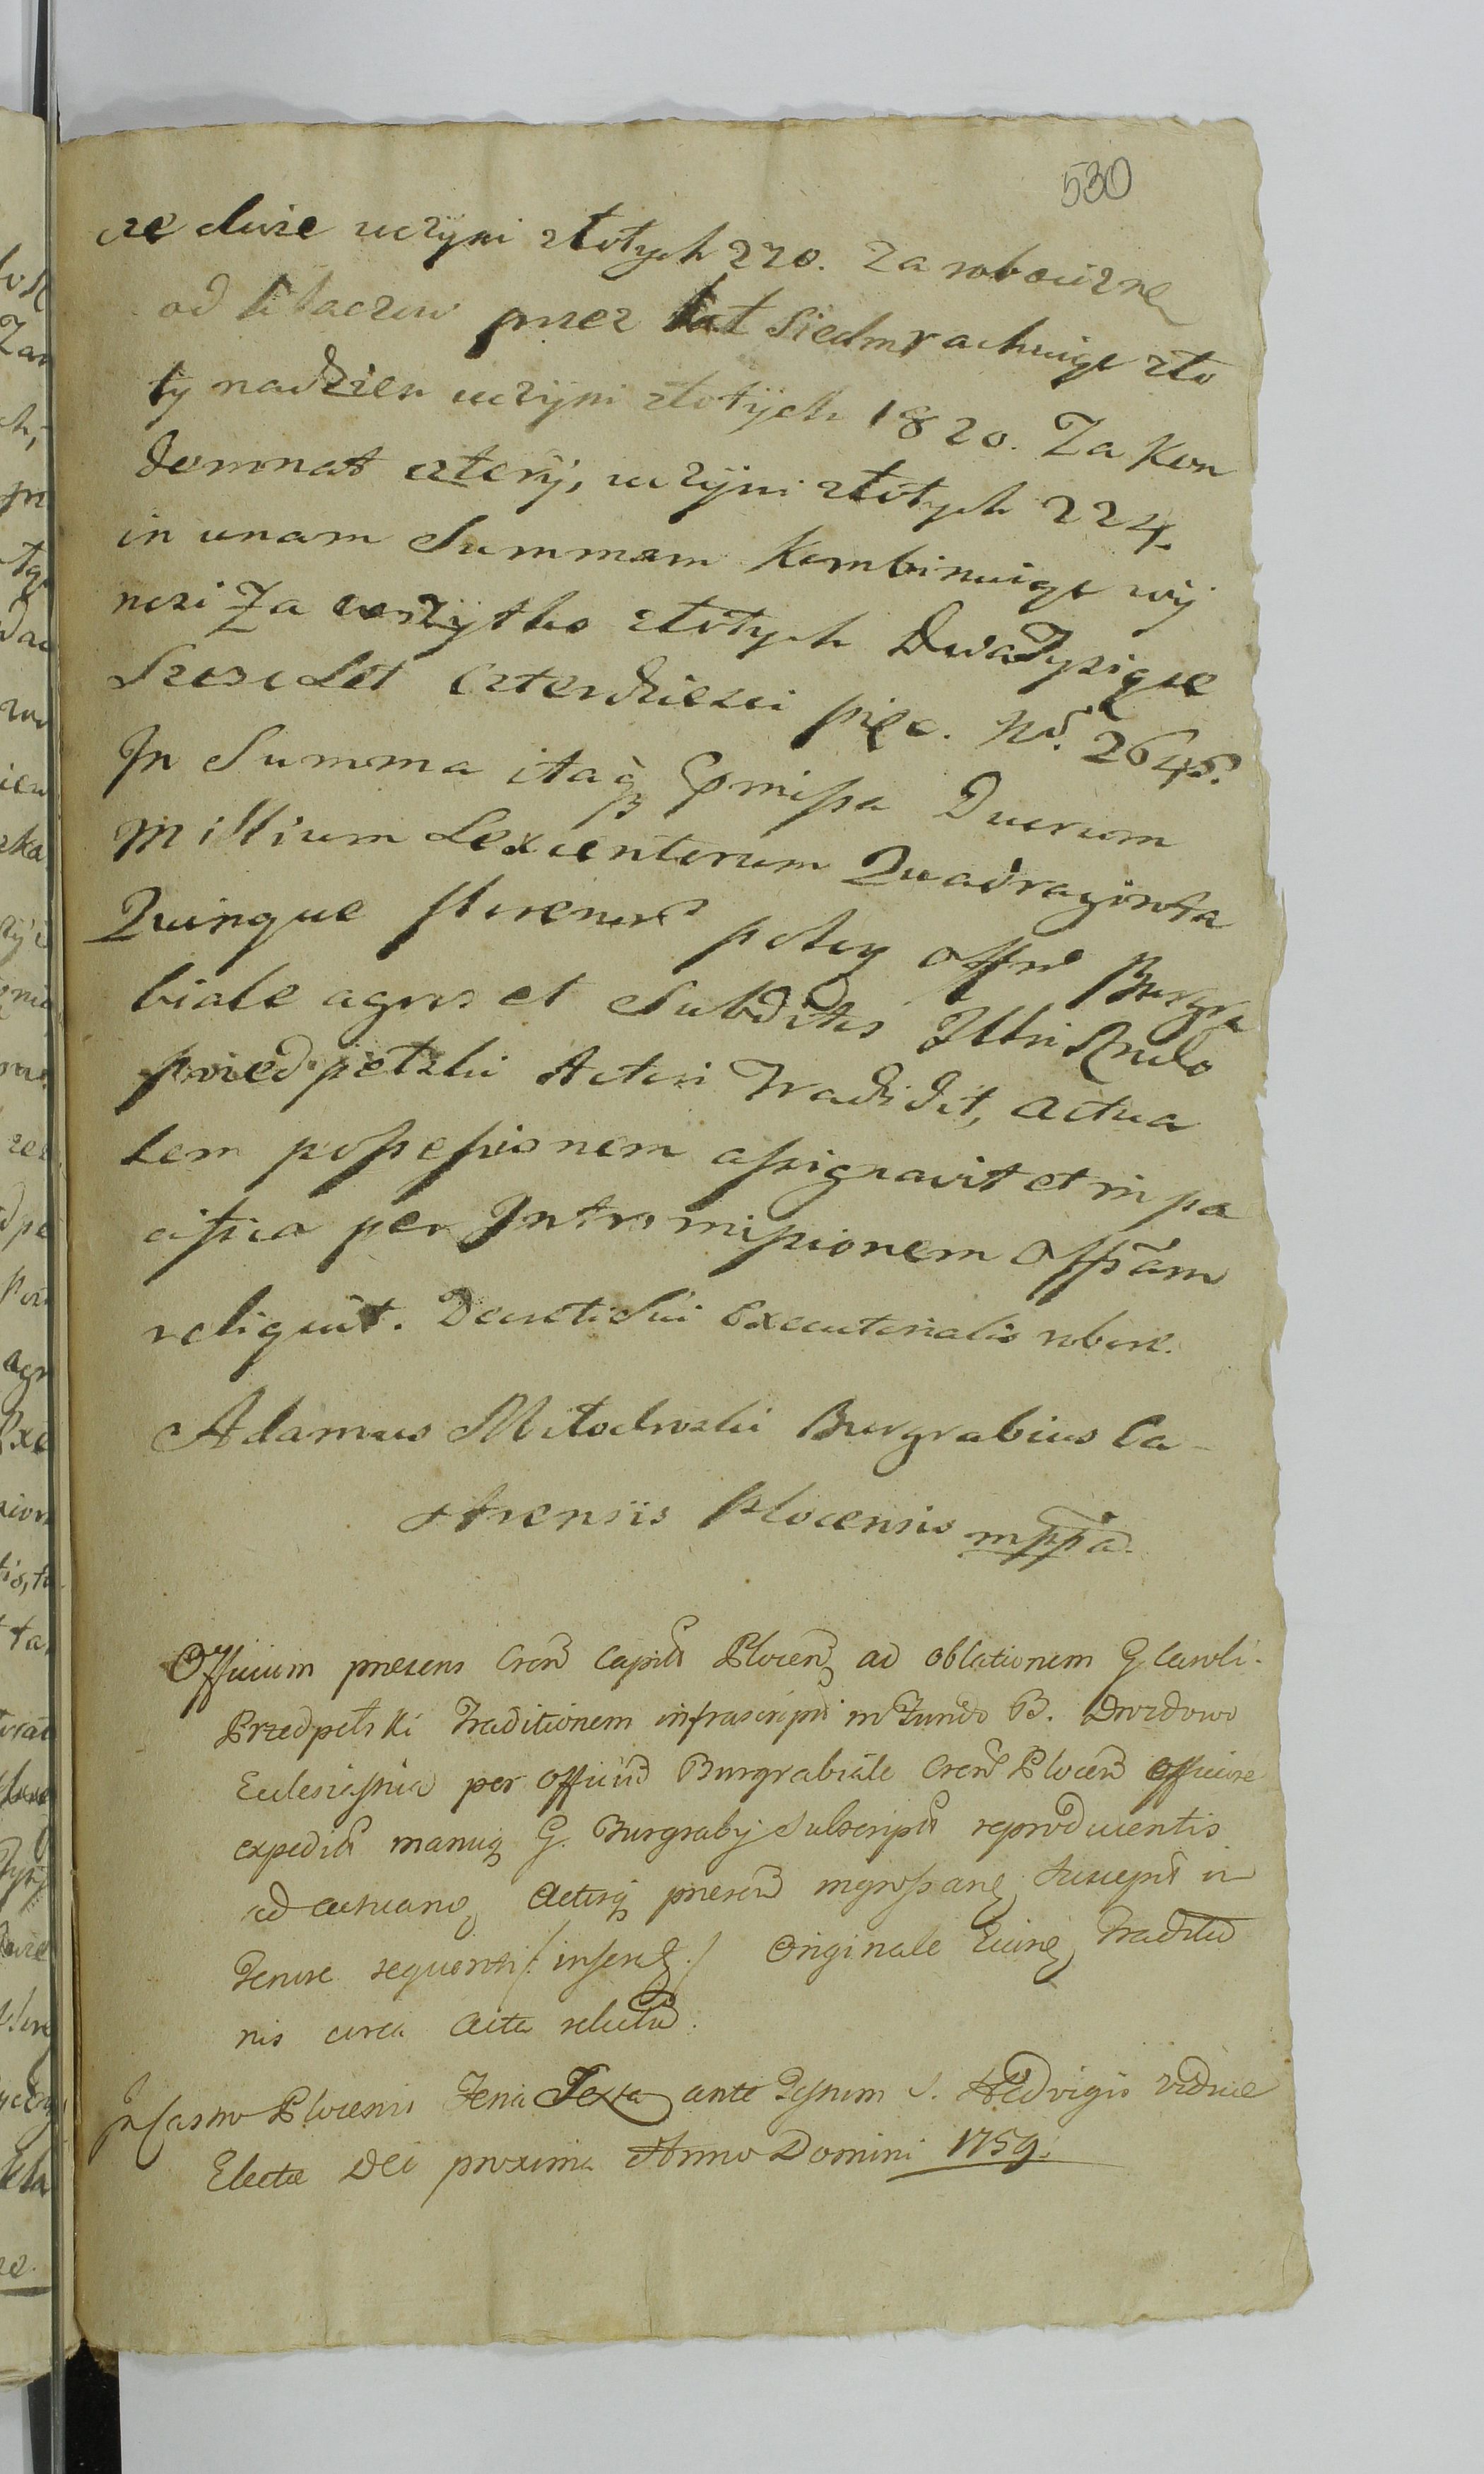 530
re dwie uczyni złotych 220. Za robociznę
od tkaczow przez lat Siedm rachuiąc zło
ty nadzien uczyni złotych 1820. Za Kon
demnat cztery, uczyni złotych 224.
in unam Summam Kombinuiąc wy
nosi Za wszytko złotych Dwa Tysiące
Szescset czterdziesci pięc. No. 2645.
In Summa itaq pmissa Duorum
Millium Sexcentorum Quadraginta
Quinque florenor polon Officm Burgra
biale agros et Subditos Illri
Przedpełski Actori Tradidit, actua
lem possessionem assignavit et in pa
cifica per Intromissionem
reliquit. Decreti Sui Executorialis robore.
Adamus Młodwski Burgrabius Ca-
strensis Plocensis mppa.
Officium praesens Cren Capitle Plocen ad oblationem G. Caroli
Przedpełski Traditionem infrascript in Fundo B. Drozdowo
Ecclesiastica per officiu Burgrabiale Cren Plocen officiose
expedit manuq G. Burgraby Subscript reproducentis
ad acticand Actisq praesen ingrossand suscepit in
Tenore sequenti /: inserat :/ Originale Traditio
nis circa Acta relictu.
In Castro Plocensi Feria Sexta ante Festum S. Hedvigis viduae
Electae Dei proxima Anno Domini 1759.